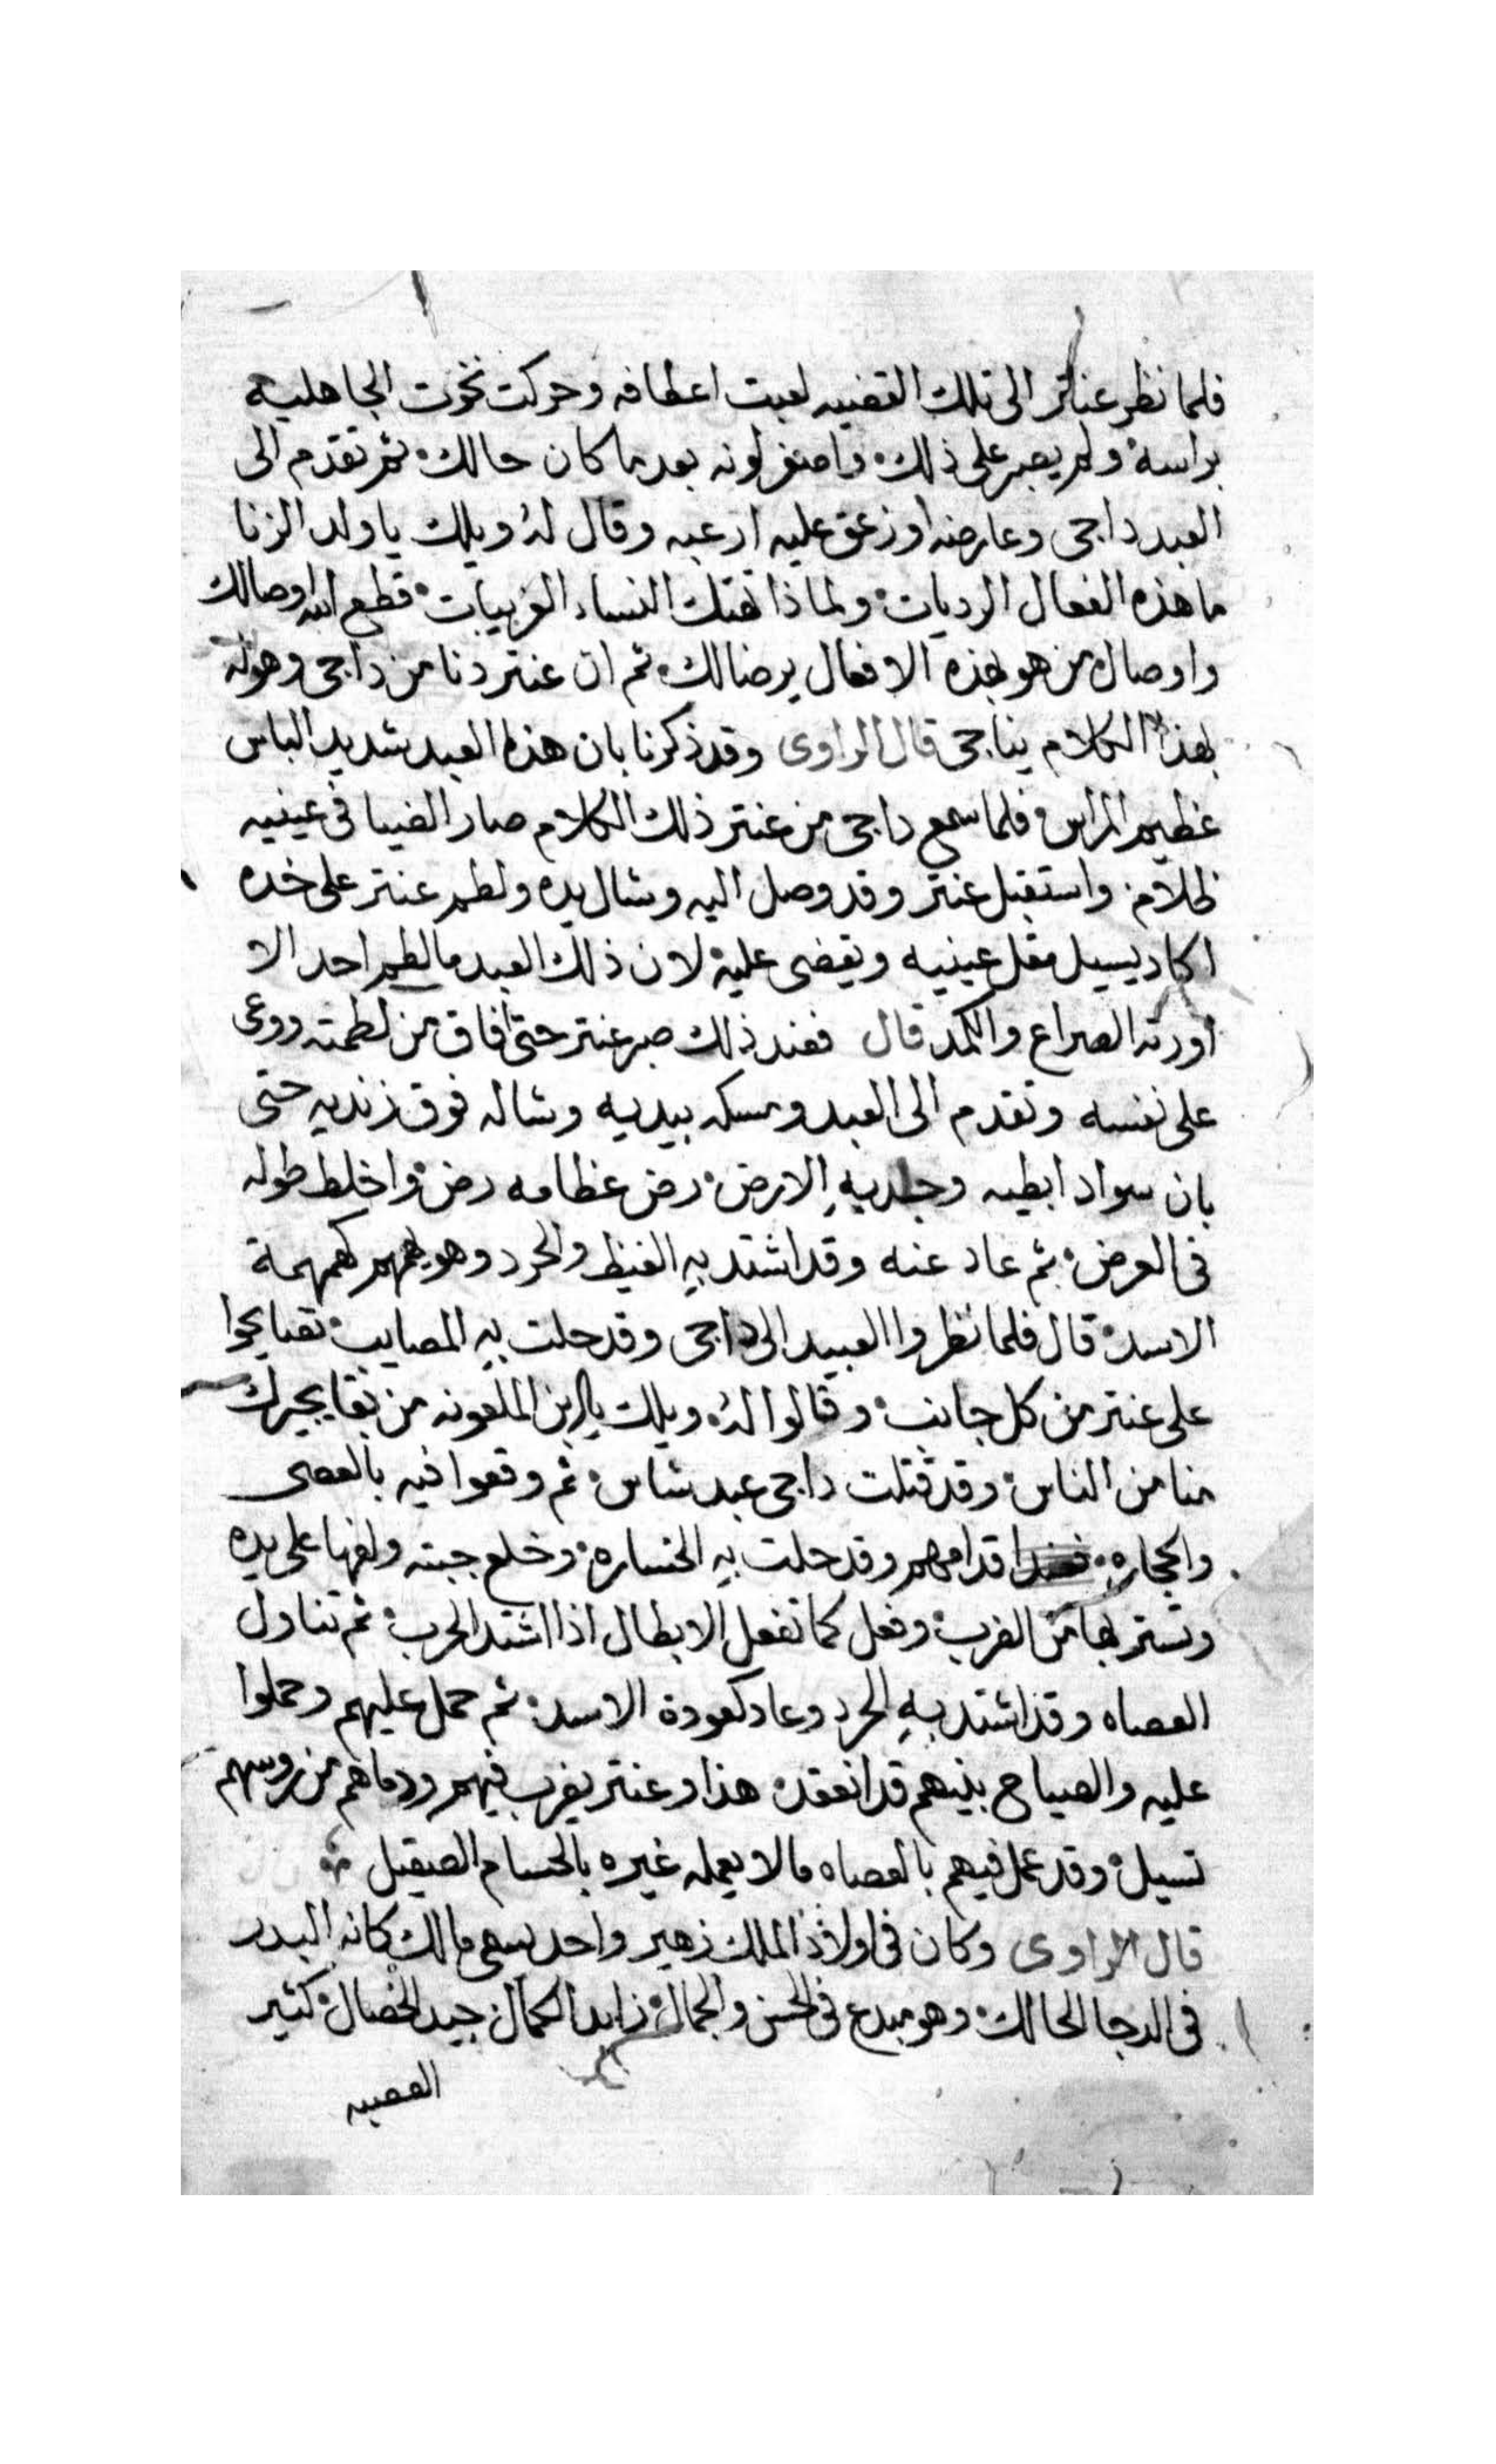 فلما نظر عنتر الى تلك القضيه لعبت اعطافه وحركت نخوت الجاهليه
براسه ولم يصبر على ذلك واصفر لونه بعد ما كان حالك ثم تقدم الى
العبد داجى وعارضه وزعق عليه ارعبه وقال له ويلك يا ولد الزنا
ما هذه الفعال الرديات ولماذا تهتك النساء الغريبات قطع الله اوصالك
واوصال من هو بهذه الافعال يرضالك ثم ان عنتر دنا من داجى وهو له
بهذا الكلام يناجى قال الراوى وقد ذكرنا بان هذا العبد شديد الباس
عظيم المراس فلما سمع داجى من عنتر ذلك الكلام صار الضيا فى عينيه
ظلام واستقبل عنتر وقد وصل اليه وشال يده ولطم عنتر على خده
اكاد يسيل مقل عينيه ويقضى عليه لان ذلك العبد ما لطم احد الا
اورته الصراع والكمد قال فعند ذلك صبر عنتر حتى افاق من لطمته ووعى
على نفسه وتقدم الى العبد ومسكه بيديه وشاله فوق زنديه حتى
بان سواد ابطيه وجلد به الارض رض عظامه رض واخلط طوله
فى العرض ثم عاد عنه وقد اشتد به الغيظ والحرد وهو يهمهم كهمهمة
الاسد قال فلما نظروا العبيد الى داجى وقد حلت به المصايب تصايحوا
على عنتر من كل جانب وقالوا له ويلك يا ابن الملعونه من بقا يجيرك
منا من الناس وقد قتلت داجى عبد شاس ثم وقعوا فيه بالعصى
والحجاره قدامهم وقد حلت به الخساره وخلع جبته ولفها على يده
وتستر بها من الضرب وفعل كما تفعل الابطال اذا اشتد الحرب ثم تناول
العصاه وقد اشتد به الحرد وعاد كعودة الاسد ثم حمل عليهم وحملوا
عليه والصياح بينهم قد انعقد هذا وعنتر يضرب فيهم ودماهم من روسهم
تسيل وقد عمل فيهم بالعصاه مالا يعمله غيره بالحسام الصيقيل
قال الراوى وكان فى اولاد الملك زهير واحد يسمى مالك كانه البدر
فى الدجا الحالك وهو مبدع فى الحسن والجمال زايد الكمال جيد الخصال كثير
العصبيه